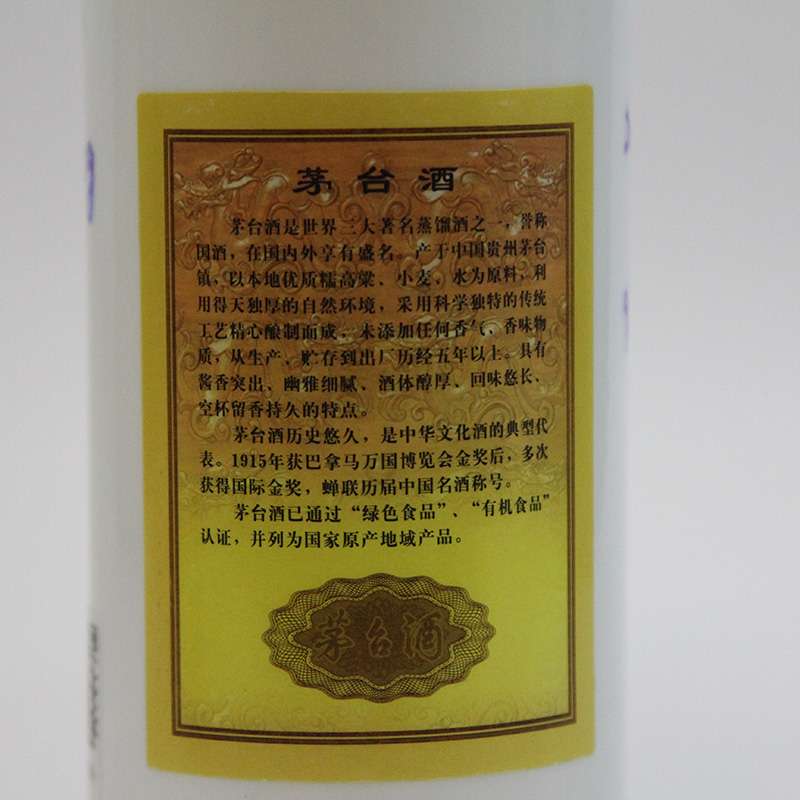 茅台酒
茅台酒是世界三大著名蒸馏酒之一，誉称
国酒，在国内外享有盛名。产于中国贵州茅台
镇，以本地优质糯高粱、小麦、水为原料，利
用得天独厚的自然环境，采用科学独特的传统
工艺精心酿制而成，未添加任何香气、香味物
质，从生产、贮存到出厂历经五年以上。具有
酱香突出、幽雅细腻、酒体醇厚、回味悠长、
空杯留香持久的特点。
茅台酒历史悠久，是中华文化酒的典型代
表。1915年获巴拿马万国博览会金奖后，多次
获得国际金奖，蝉联历届中国名酒称号。
茅台酒已通过“绿色食品”、“有机食品”
认证，并列为国家原产地域产品。
茅台酒